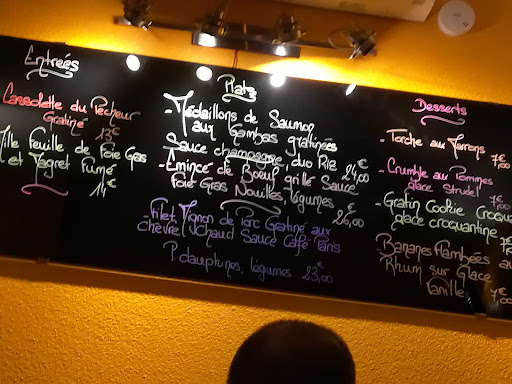 Entreés
Cassolette du Pêcheur
Gratiné 13€
Mille Feuille de Foie Gras
et Magret Fumé
14€
Plats
- Médaillons de Saumon
aux Gambas gratinées
Sauce champagne, duo Riz
24,00€
- Émincé de Boeuf grillé Sauce
Foie Gras Nouilles, légumes
26,00€
- Filet Mignon de Porc Gratiné aux
chèvre Chaud Sauce Café Paris
P. dauphines, légumes 23,00€
Desserts
- Torche aux Marrons 7€,00
- Crumble aux Pommes
glace Strudel 7€,00
- Gratin Cookie Croqua
glace croquantine 7€
Bananes Flambées au
Rhum sur Glace
Vanille 7€,00